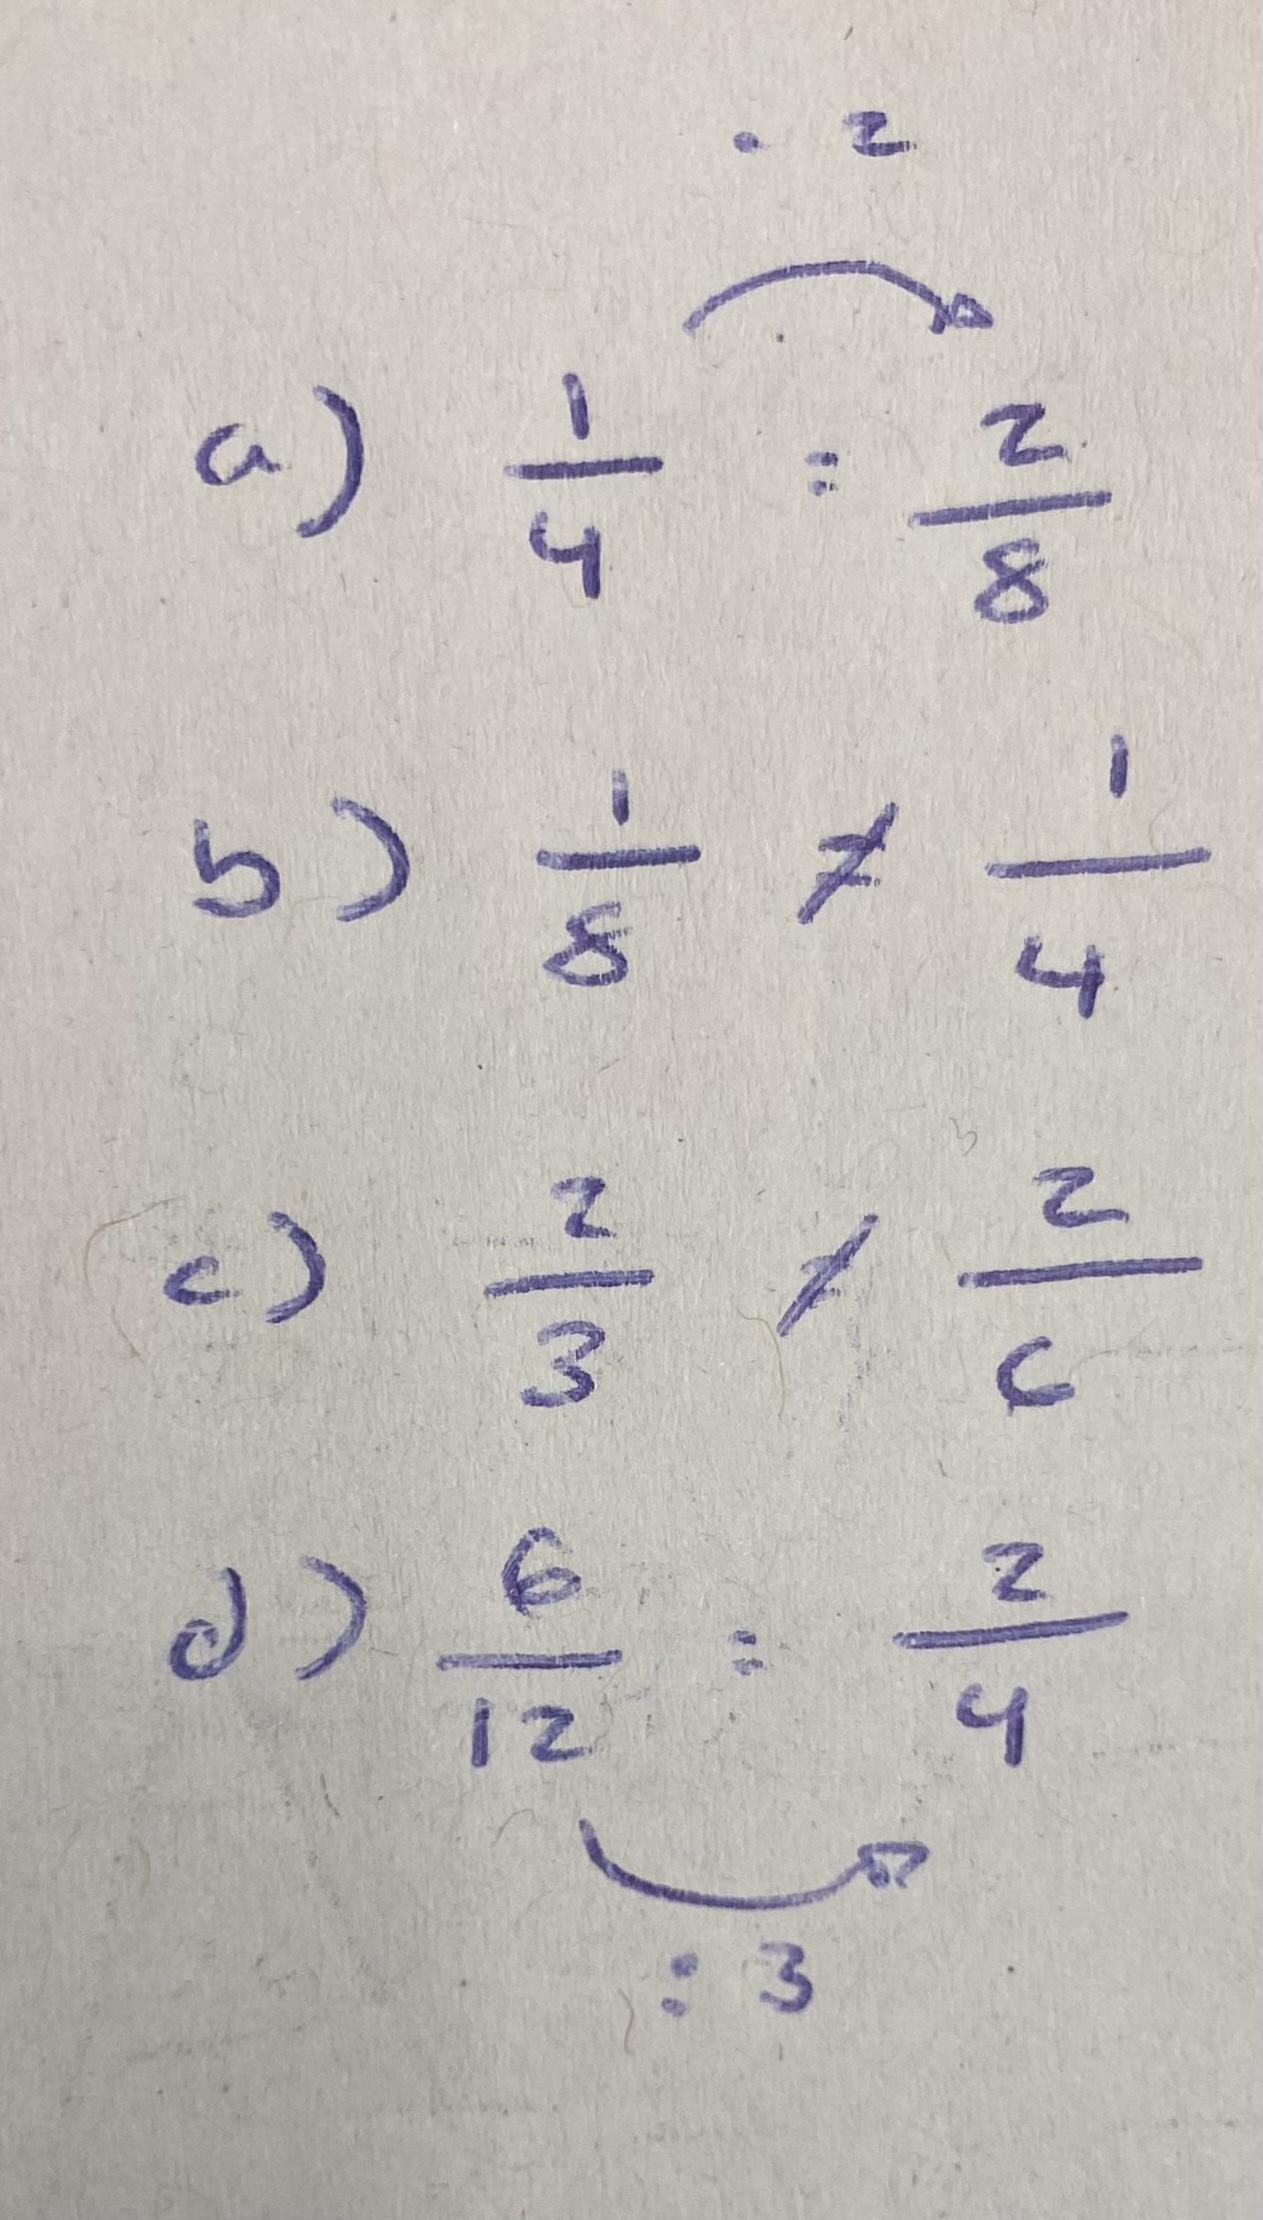 · 2
a) 1/4 = 2/8
b) 1/8 ≠ 1/4
c) 2/3 ≠ 2/6
d) 6/12 = 2/4
: 3